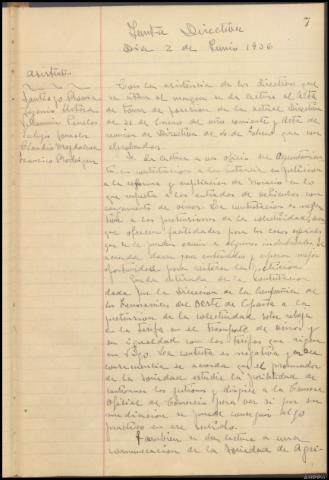 7
Junta Directiva
Dia 2 de Junio 1936
Asistentes
Santiago
Eugenio
Ramiro
Eulogio Gonzalez
Claudio Magdalena
Francisco Rodriguez
Con la asistencia de los directivos que
se citan al margen se da lectura al Acta
de toma de posesion de la actual Directiva
de 31 de Enero del año corriente y Acta de
reunion de Directiva de 4 de Febrero que son
aprobadas.
Se da lectura a un oficio del Ayuntamiento
en contestacion a la instancia en peticion
a la reforma y ampliacion de horario en lo
que respecta a las entradas de vehiculos con
cargamento de vinos. La contestacion es negativa
a las pretensiones de la colectividad, aunque
que ofrecen facilidades para los casos especiales
que se le puedan ocurrir a algunos industriales. Se
acuerda darse por enterados y esperar mejor
oportunidad para reiterar esta peticion.
Queda enterada de la contestacion
dada por la Direccion de la Compañia de
los Ferrocarriles del Oeste de España a la
pretension de la colectividad sobre rebaja
en la tarifa en el transporte de vinos y
en igualdad con las tarifas que rigen
en Vigo. La contesta es negativa y en
consecuencia se acuerda que el procurador
de la Sociedad estudie la posibilidad de
continuar las gestiones y dirigirse a la Camara
Oficial de Comercio para ver si por su
mediacion se puede conseguir algo
practico en ese sentido.
Tambien se dan lectura a una
comunicacion de la Sociedad de Agri-
AHPPo